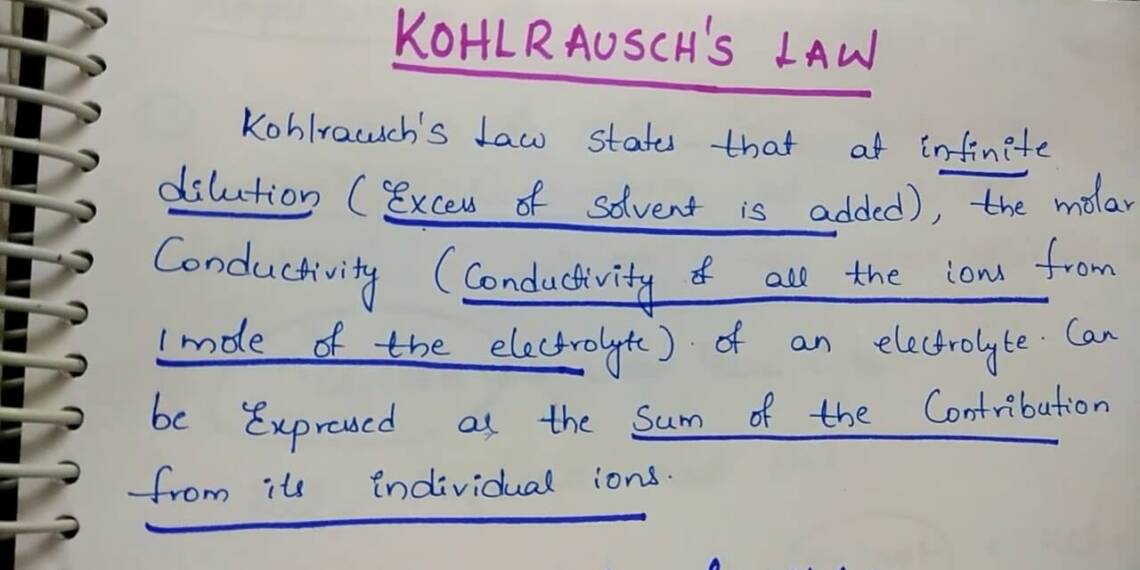 KOHLRAUSCH'S LAW
Kohlrausch's Law states that at infinite
dilution (Excess of solvent is added), the molar
Conductivity (Conductivity of all the ions from
1 mole of the electrolyte). of an electrolyte. Can
be Expressed as the sum of the Contribution
from its individual ions.